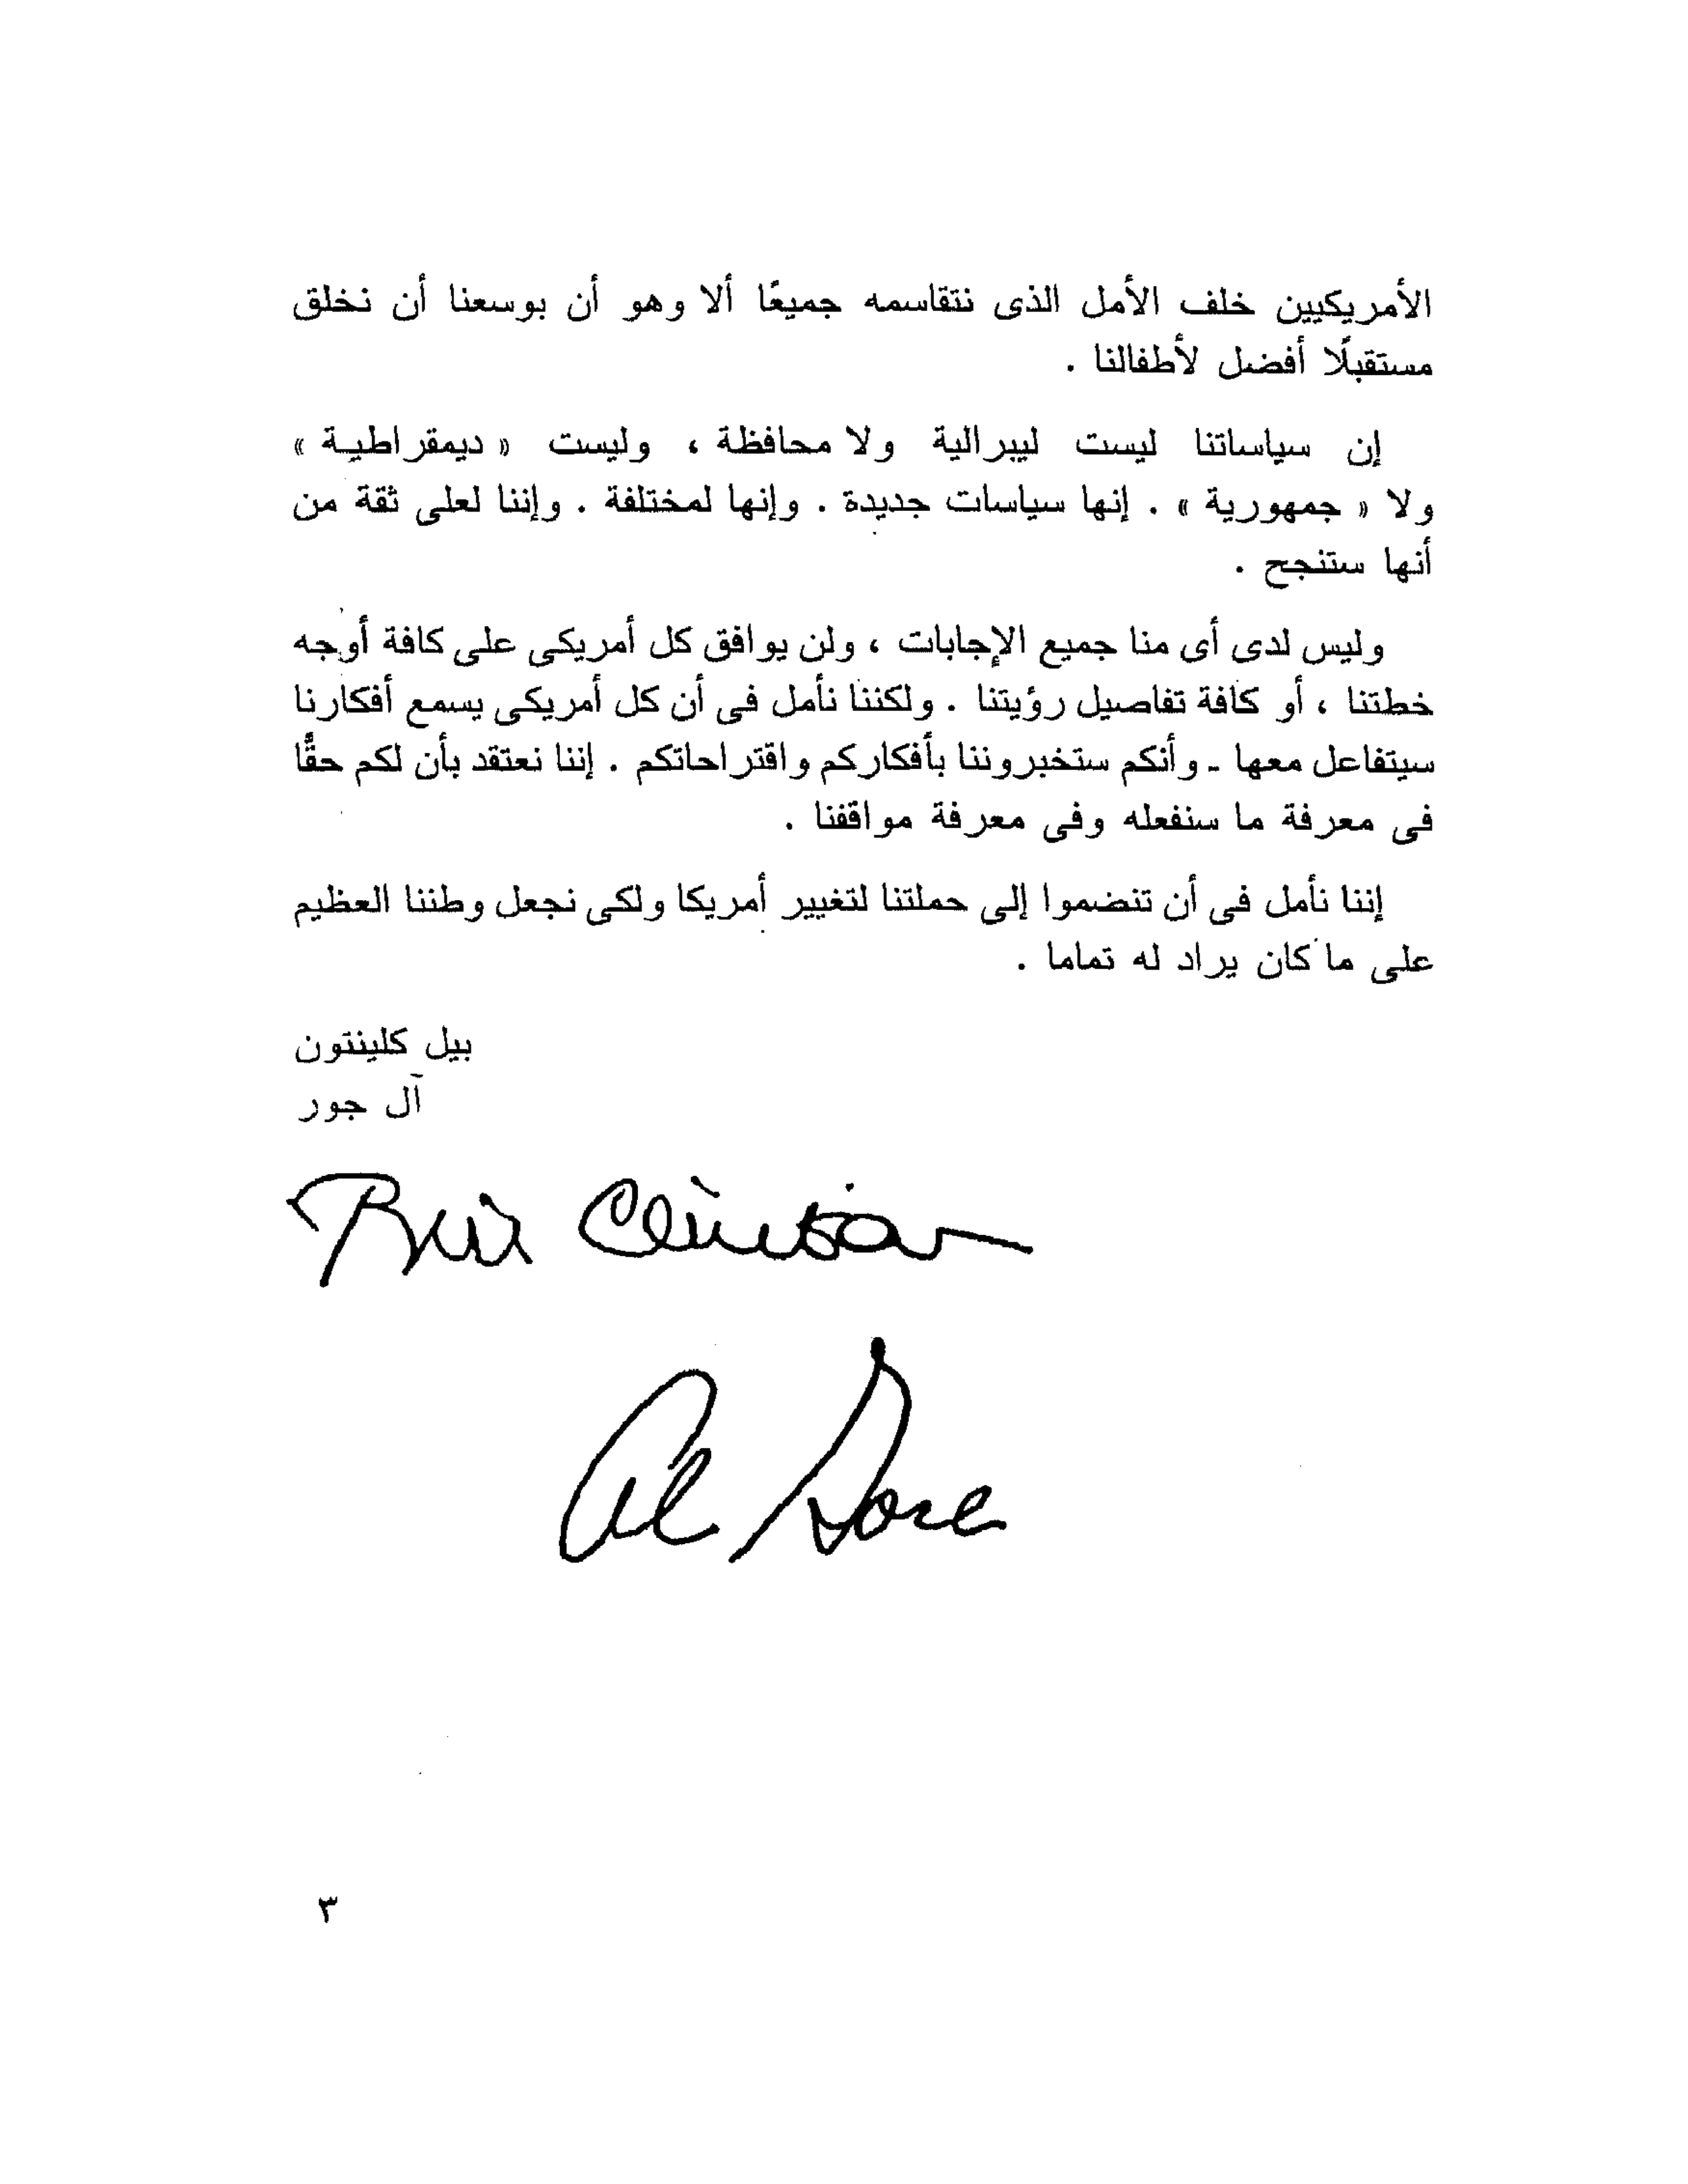 الأمريكيين خلف الأمل الذى نتقاسمه جميعًا ألا وهو أن بوسعنا أن نخلق
مستقبلًا أفضل لأطفالنا .
إن سياساتنا ليست ليبرالية ولا محافظة ، وليست « ديمقراطية »
ولا « جمهورية » . إنها سياسات جديدة . وإنها لمختلفة . وإننا لعلى ثقة من
أنها ستنجح .
وليس لدى أى منا جميع الإجابات ، ولن يوافق كل أمريكى على كافة أوجه
خطتنا ، أو كافة تفاصيل رؤيتنا . ولكننا نأمل فى أن كل أمريكى يسمع أفكارنا
سيتفاعل معها - وأنكم ستخبروننا بأفكاركم واقتراحاتكم . إننا نعتقد بأن لكم حقًّا
فى معرفة ما سنفعله وفى معرفة مواقفنا .
إننا نأمل فى أن تنضموا إلى حملتنا لتغيير أمريكا ولكى نجعل وطننا العظيم
على ما كان يراد له تماما .
بيل كلينتون
آل جور
Bill Clinton
Al Gore
٣